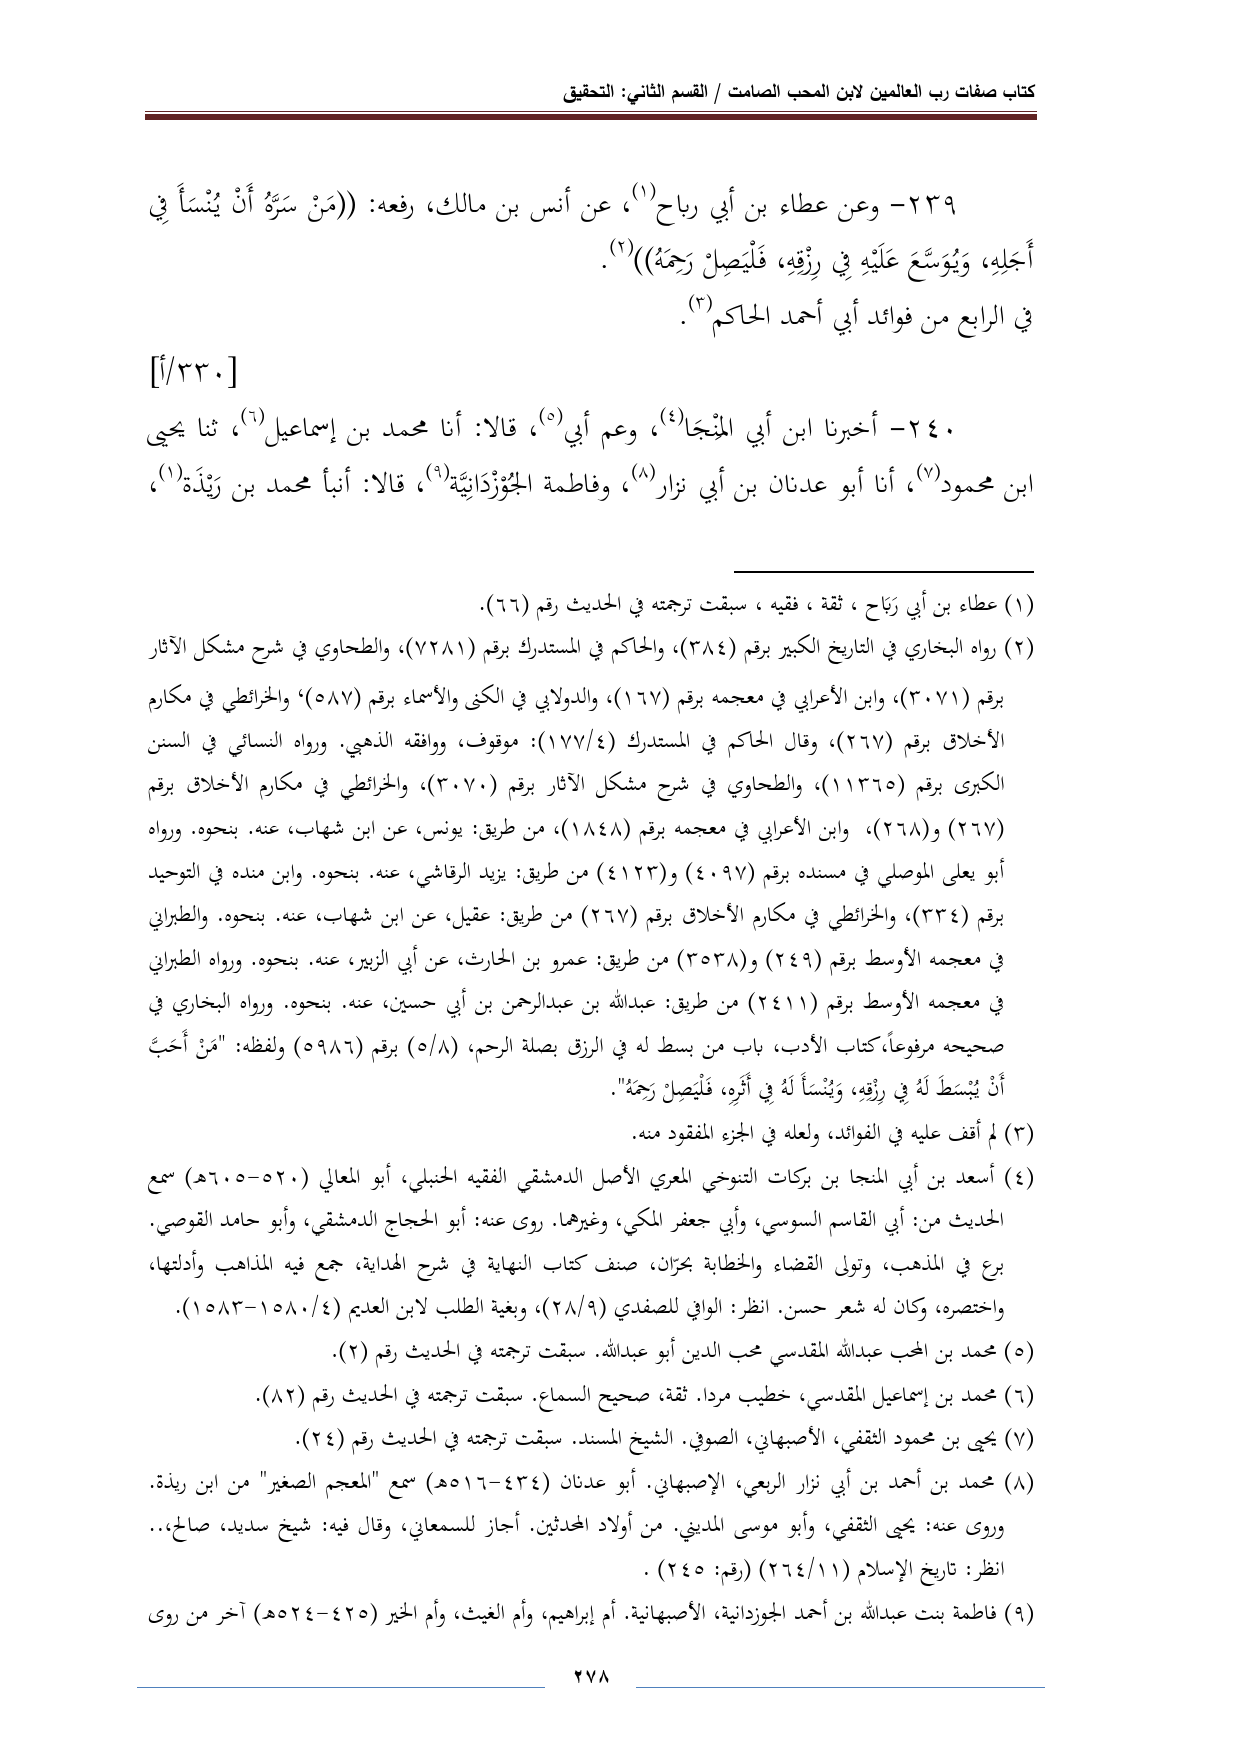 كتاب صفات رب العالمين لابن المحب الصامت / القسم الثاني: التحقيق
٢٣٩- وعن عطاء بن أبي رباح(١)، عن أنس بن مالك، رفعه: ((مَنْ سَرَّهُ أَنْ يُنْسَأَ فِي
أَجَلِهِ، وَيُوَسَّعَ عَلَيْهِ فِي رِزْقِهِ، فَلْيَصِلْ رَحِمَهُ))(٢).
في الرابع من فوائد أبي أحمد الحاكم(٣).
[٣٣٠/أ]
٢٤٠- أخبرنا ابن أبي المِنْجَا(٤)، وعم أبي(٥)، قالا: أنا محمد بن إسماعيل(٦)، ثنا يحيى
ابن محمود(٧)، أنا أبو عدنان بن أبي نزار(٨)، وفاطمة الجُوْزْدَانِيَّة(٩)، قالا: أنبأ محمد بن رَيْذَة(١)،
(١) عطاء بن أبي رَبَاح ، ثقة ، فقيه ، سبقت ترجمته في الحديث رقم (٦٦).
(٢) رواه البخاري في التاريخ الكبير برقم (٣٨٤)، والحاكم في المستدرك برقم (٧٢٨١)، والطحاوي في شرح مشكل الآثار
برقم (٣٠٧١)، وابن الأعرابي في معجمه برقم (١٦٧)، والدولابي في الكنى والأسماء برقم (٥٨٧)، والخرائطي في مكارم
الأخلاق برقم (٢٦٧)، وقال الحاكم في المستدرك (١٧٧/٤): موقوف، ووافقه الذهبي. ورواه النسائي في السنن
الكبرى برقم (١١٣٦٥)، والطحاوي في شرح مشكل الآثار برقم (٣٠٧٠)، والخرائطي في مكارم الأخلاق برقم
(٢٦٧) و(٢٦٨)، وابن الأعرابي في معجمه برقم (١٨٤٨)، من طريق: يونس، عن ابن شهاب، عنه. بنحوه. ورواه
أبو يعلى الموصلي في مسنده برقم (٤٠٩٧) و(٤١٢٣) من طريق: يزيد الرقاشي، عنه. بنحوه. وابن منده في التوحيد
برقم (٣٣٤)، والخرائطي في مكارم الأخلاق برقم (٢٦٧) من طريق: عقيل، عن ابن شهاب، عنه. بنحوه. والطبراني
في معجمه الأوسط برقم (٢٤٩) و(٣٥٣٨) من طريق: عمرو بن الحارث، عن أبي الزبير، عنه. بنحوه. ورواه الطبراني
في معجمه الأوسط برقم (٢٤١١) من طريق: عبدالله بن عبدالرحمن بن أبي حسين، عنه. بنحوه. ورواه البخاري في
صحيحه مرفوعاً،كتاب الأدب، باب من بسط له في الرزق بصلة الرحم، (٥/٨) برقم (٥٩٨٦) ولفظه: "مَنْ أَحَبَّ
أَنْ يُبْسَطَ لَهُ فِي رِزْقِهِ، وَيُنْسَأَ لَهُ فِي أَثَرِهِ، فَلْيَصِلْ رَحِمَهُ".
(٣) لم أقف عليه في الفوائد، ولعله في الجزء المفقود منه.
(٤) أسعد بن أبي المنجا بن بركات التنوخي المعري الأصل الدمشقي الفقيه الحنبلي، أبو المعالي (٥٢٠-٦٠٥هـ) سمع
الحديث من: أبي القاسم السوسي، وأبي جعفر المكي، وغيرهما. روى عنه: أبو الحجاج الدمشقي، وأبو حامد القوصي.
برع في المذهب، وتولى القضاء والخطابة بحرّان، صنف كتاب النهاية في شرح الهداية، جمع فيه المذاهب وأدلتها،
واختصره، وكان له شعر حسن. انظر: الوافي للصفدي (٢٨/٩)، وبغية الطلب لابن العديم (١٥٨٠/٤-١٥٨٣).
(٥) محمد بن المحب عبدالله المقدسي محب الدين أبو عبدالله. سبقت ترجمته في الحديث رقم (٢).
(٦) محمد بن إسماعيل المقدسي، خطيب مردا. ثقة، صحيح السماع. سبقت ترجمته في الحديث رقم (٨٢).
(٧) يحيى بن محمود الثقفي، الأصبهاني، الصوفي. الشيخ المسند. سبقت ترجمته في الحديث رقم (٢٤).
(٨) محمد بن أحمد بن أبي نزار الربعي، الإصبهاني. أبو عدنان (٤٣٤-٥١٦هـ) سمع "المعجم الصغير" من ابن ريذة.
وروى عنه: يحيى الثقفي، وأبو موسى المديني. من أولاد المحدثين. أجاز للسمعاني، وقال فيه: شيخ سديد، صالح،..
انظر: تاريخ الإسلام (٢٦٤/١١) (رقم: ٢٤٥) .
(٩) فاطمة بنت عبدالله بن أحمد الجوزدانية، الأصبهانية. أم إبراهيم، وأم الغيث، وأم الخير (٤٢٥-٥٢٤هـ) آخر من روى
٢٧٨